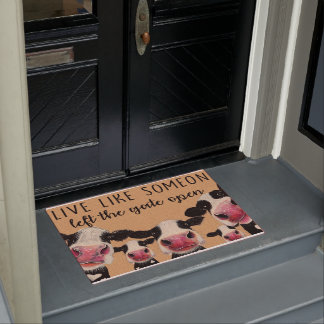 LIVE LIKE SOMEON
left the gate open